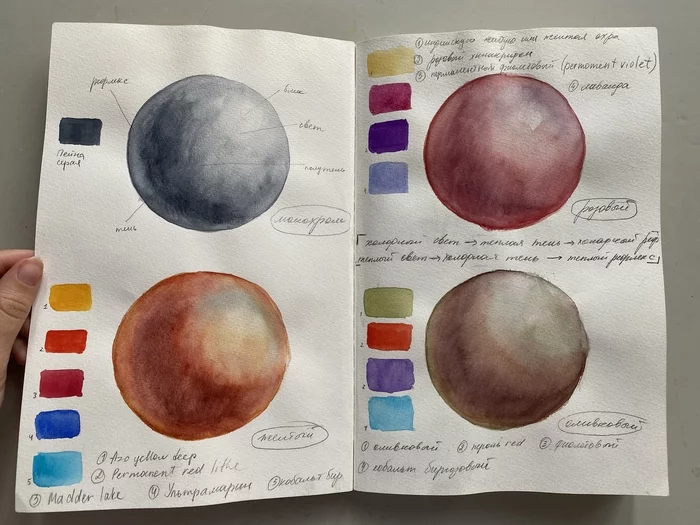 рефлекс
блик
свет
полутень
Пейна
серая
тень
монохром
1
2
3
4
5
желтый
① Azo yellow deep
② Permanent red lithe
③ Madder lake ④ Ультрамарин ⑤ кобальт бир
① индийскую желтую или желтая охра
② розовый хинакридон
③ перманентный фиолетовый (permanent violet)
④ лаванда
розовый
холодный свет → теплая тень → холодный реф
теплый свет → холодная тень → теплый рефлекс
1
2
3
4
оливковый
① оливковый ② red ③ фиолетовый
④ кобальт бирюзовый